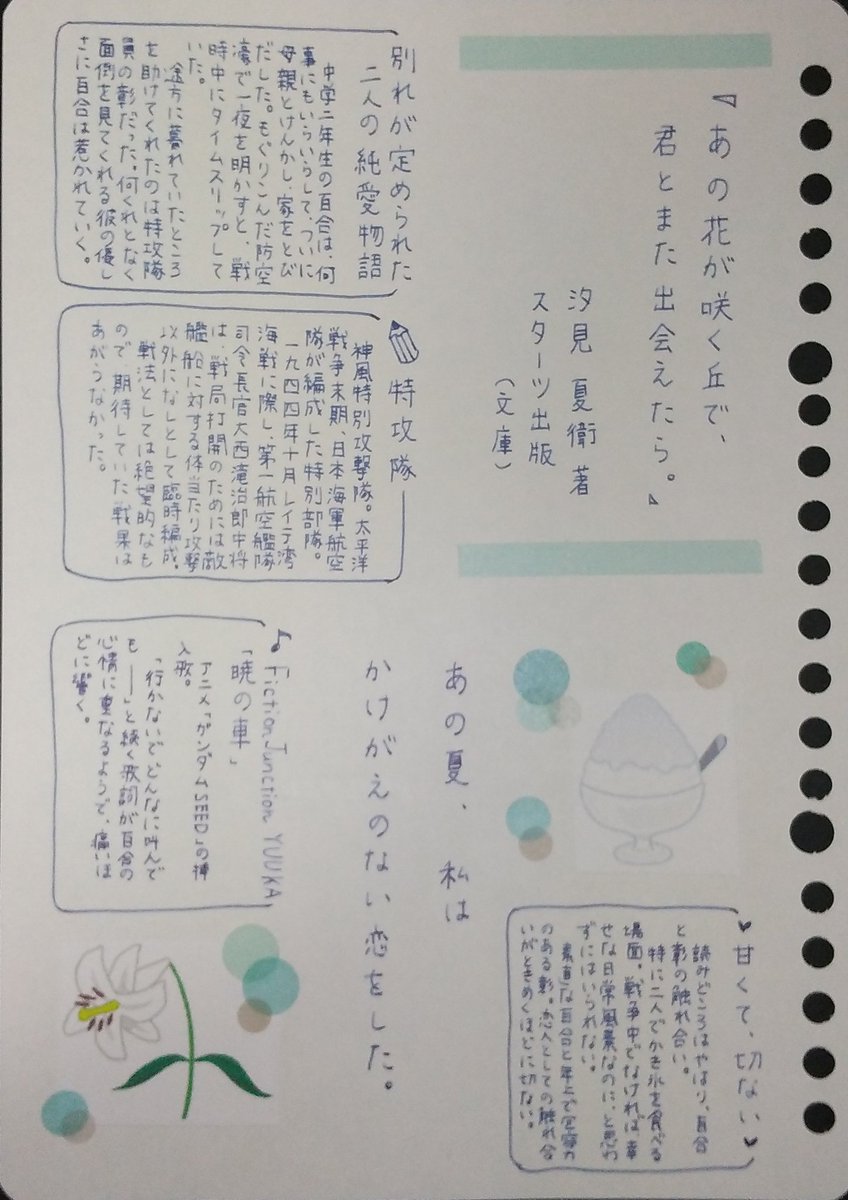 『あの花が咲く丘で、
君とまた出会えたら。』
汐見 夏衛 著
スターツ出版
(文庫)
別れが定められた
二人の純愛物語
中学二年生の百合は、何
事にもいらいらして、ついに
母親とけんかし、家をとび
だした。もぐりこんだ防空
濠で一夜を明かすと、戦
時中にタイムスリップして
いた。
途方に暮れていたところ
を助けてくれたのは特攻隊
員の彰だった。何くれとなく
面倒を見てくれる彼の優し
さに百合は惹かれていく。
特攻隊
神風特別攻撃隊。太平洋
戦争末期、日本海軍航空
隊が編成した特別部隊。
一九四四年十月レイテ湾
海戦に際し、第一航空艦隊
司令長官大西滝治郎中将
は、戦局打開のためには敵
艦船に対する体当たり攻撃
以外になしとして臨時編成。
戦法としては絶望的なも
ので期待していた戦果は
あがらなかった。
あの夏、私は
かけがえのない恋をした。
♪「FictionJunction YUUKA
「暁の車」
アニメ「ガンダムSEED」の挿
入歌。
「行かないで どんなに叫んで
も ――」と続く歌詞が百合の
心情に重なるようで、痛いほ
どに響く。
♥甘くて、切ない♥
読みどころはやはり、百合
と彰の触れ合い。
特に二人でかき氷を食べる
場面。戦争中でなければ幸
せな日常風景なのに、と思わ
ずにはいられない。
素直な百合と年上で包容力
のある彰。恋人としての触れ合
いがときめくほどに切ない。